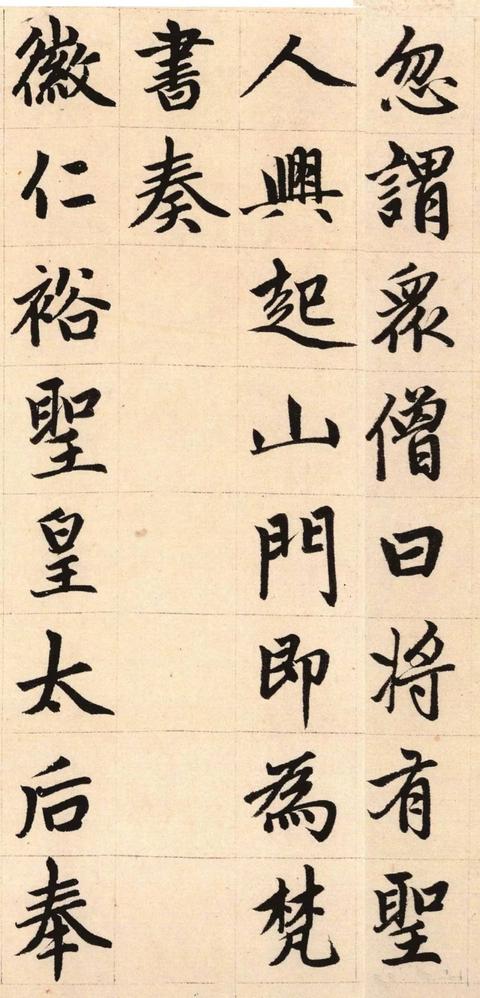 忽謂衆僧曰将有聖
人興起山門即為梵
書奏
徽仁裕聖皇太后奉